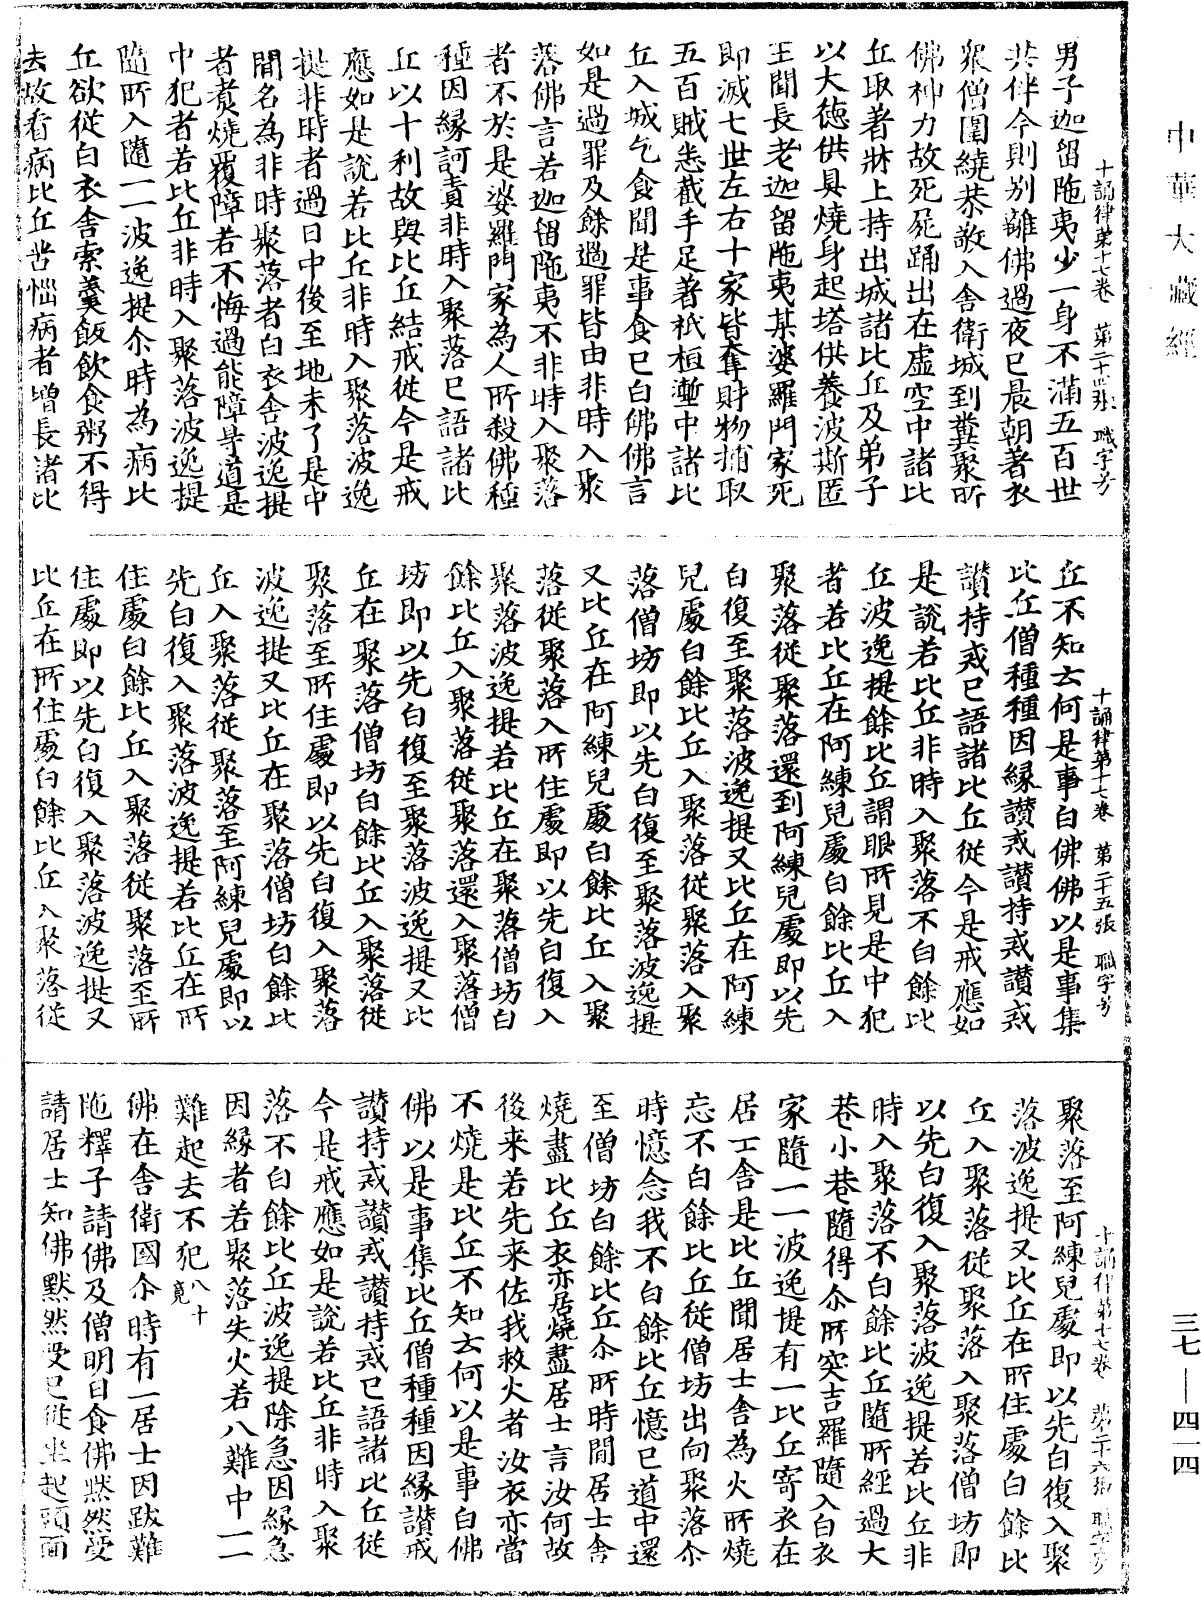 中華大藏經
十誦律第十七卷 第二十四張 職字号
男子迦留陁夷少一身不滿五百世
共伴今則別離佛過夜已晨朝著衣
衆僧圍繞恭敬入舍衛城到糞聚所
佛神力故死屍踊出在虛空中諸比
丘取著牀上持出城諸比丘及弟子
以大德供具燒身起塔供養波斯匿
王聞長老迦留陁夷某婆羅門家死
即滅七世左右十家皆奪財物捕取
五百賊悉截手足著祇桓塹中諸比
丘入城乞食聞是事食已白佛佛言
如是過罪及餘過罪皆由非時入聚
落佛言若迦留陁夷不非時入聚落
者不於是婆羅門家為人所殺佛種
種因緣訶責非時入聚落已語諸比
丘以十利故與比丘結戒從今是戒
應如是說若比丘非時入聚落波逸
提非時者過日中後至地未了是中
間名為非時聚落者白衣舍波逸提
者煑燒覆障若不悔過能障㝵道是
中犯者若比丘非時入聚落波逸提
隨所入隨一一波逸提尒時為病比
丘欲從白衣舍索羹飯飲食粥不得
去故看病比丘苦惱病者增長諸比
十誦律第十七卷 第二十五張 職字号
丘不知云何是事白佛佛以是事集
比丘僧種種因緣讃戒讃持戒讃戒
讃持戒已語諸比丘從今是戒應如
是說若比丘非時入聚落不白餘比
丘波逸提餘比丘謂眼所見是中犯
者若比丘在阿練兒處白餘比丘入
聚落從聚落還到阿練兒處即以先
白復至聚落波逸提又比丘在阿練
兒處白餘比丘入聚落從聚落入聚
落僧坊即以先白復至聚落波逸提
又比丘在阿練兒處白餘比丘入聚
落從聚落入所住處即以先白復入
聚落波逸提若比丘在聚落僧坊白
餘比丘入聚落從聚落還入聚落僧
坊即以先白復至聚落波逸提又比
丘在聚落僧坊白餘比丘入聚落從
聚落至所住處即以先白復入聚落
波逸提又比丘在聚落僧坊白餘比
丘入聚落從聚落至阿練兒處即以
先白復入聚落波逸提若比丘在所
住處白餘比丘入聚落從聚落至所
住處即以先白復入聚落波逸提又
比丘在所住處白餘比丘入聚落從
十誦律第十七卷 第二十六張 職字号
聚落至阿練兒處即以先白復入聚
落波逸提又比丘在所住處白餘比
丘入聚落從聚落入聚落僧坊即
以先白復入聚落波逸提若比丘非
時入聚落不白餘比丘隨所經過大
巷小巷隨得尒所突吉羅隨入白衣
家隨一一波逸提有一比丘寄衣在
居士舍是比丘聞居士舍為火所燒
忘不白餘比丘從僧坊出向聚落尒
時憶念我不白餘比丘憶已道中還
至僧坊白餘比丘尒所時間居士舍
燒盡比丘衣亦居燒盡居士言汝何故
後来若先来佐我救火者汝衣亦當
不燒是比丘不知云何以是事白佛
佛以是事集比丘僧種種因緣讃戒
讃持戒讃戒讃持戒已語諸比丘從
今是戒應如是說若比丘非時入聚
落不白餘比丘波逸提除急因緣急
因緣者若聚落失火若八難中一一
難起去不犯八十竟
佛在舍衛國尒時有一居士因跋難
陁釋子請佛及僧明日食佛默然受
請居士知佛默然受已從坐起頭面
三七—四一四